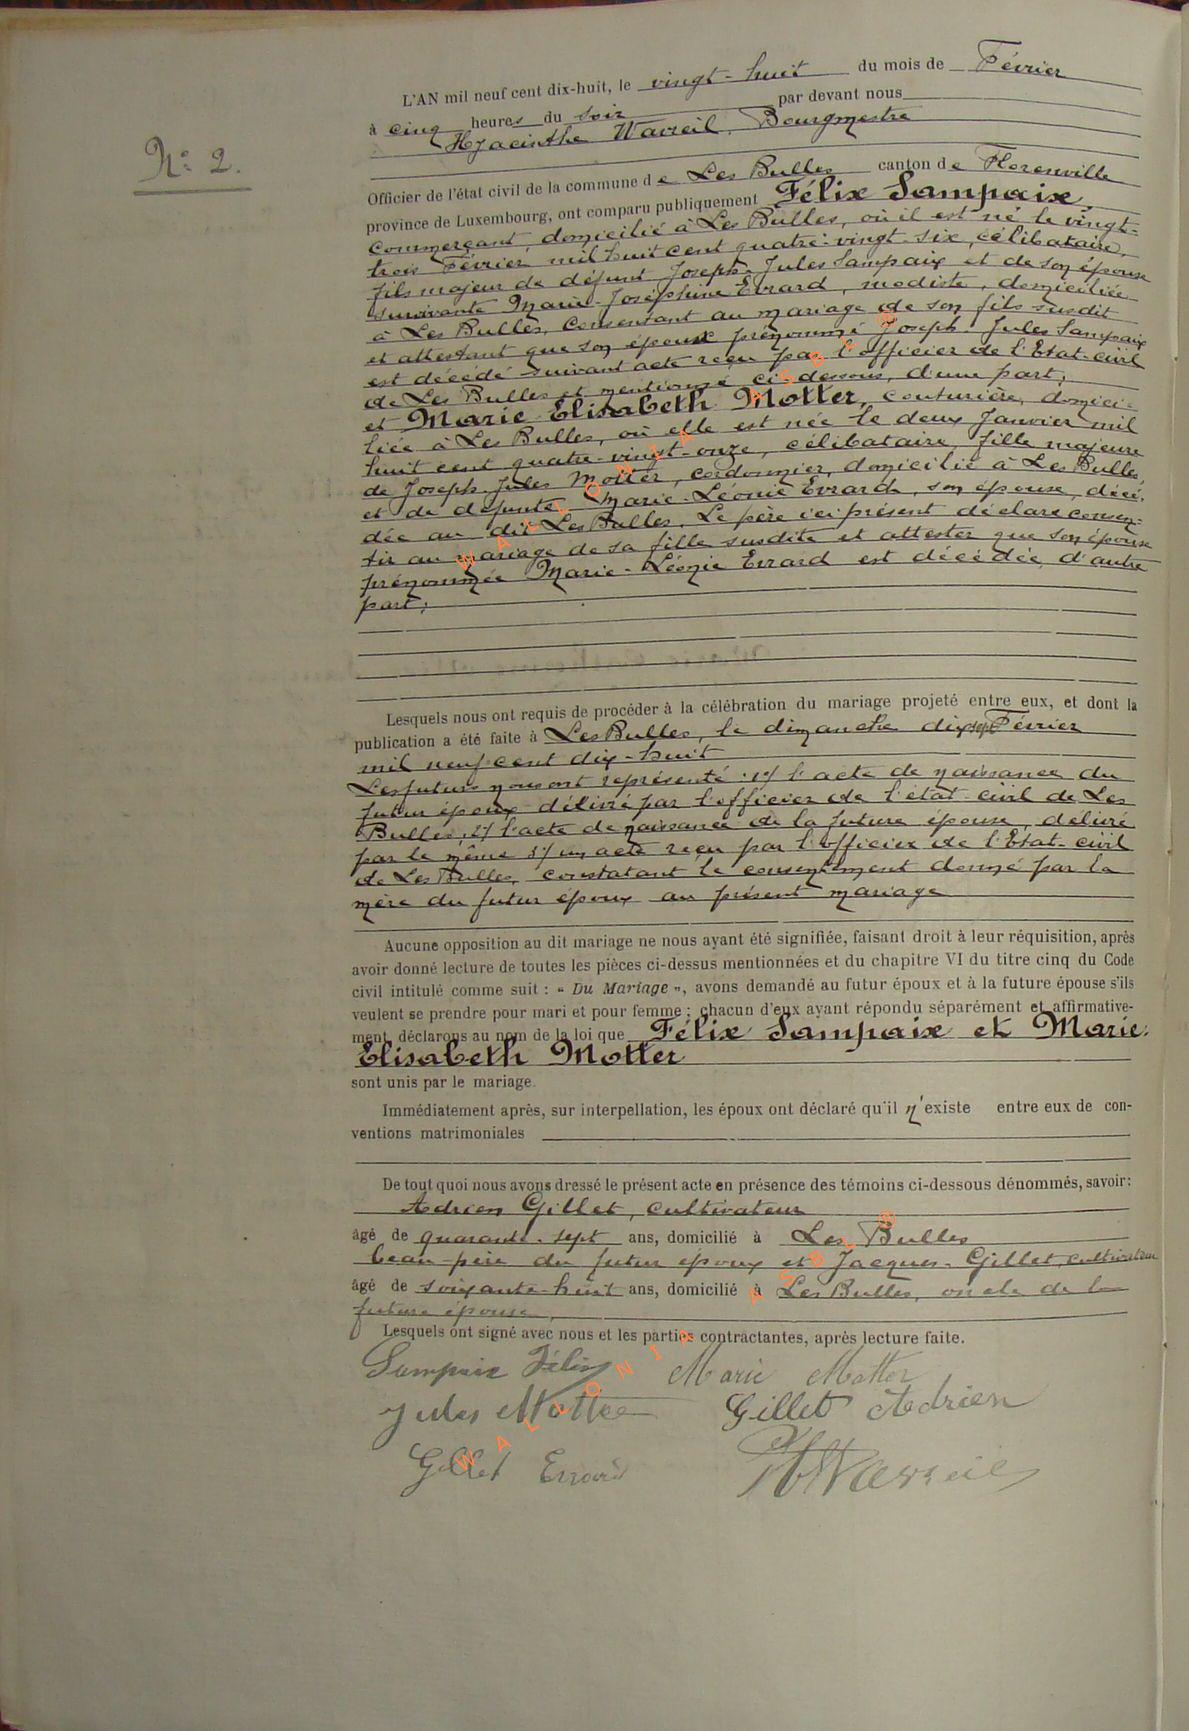 L'AN mil neuf cent dix-huit, le vingt-huit du mois de Février
à cinq heures du soir par devant nous
Hyacinthe Warreil, Bourgmestre
Nº 2.
Officier de l'état civil de la commune de Les Bulles canton de Florenville
province de Luxembourg, ont comparu publiquement Félix Sampaix,
commerçant, domicilié à Les Bulles, où il est né le vingt-
trois Février mil huit cent quatre-vingt-six, célibataire,
fils majeur de défunt Joseph-Jules Sampaix et de son épouse
survivante Marie-Joséphine Evrard, modiste, domiciliée
à Les Bulles, consentant au mariage de son fils susdit
et attestant que son époux prénommé Joseph-Jules Sampaix
est décédé suivant acte reçu par l'officier de l'Etat-civil
de Les Bulles et mentionné ci-dessous, d'une part;
et Marie Elisabeth Motter, couturière, domici-
liée à Les Bulles, où elle est née le deux Janvier mil
huit cent quatre-vingt-onze, célibataire, fille majeure
de Joseph-Jules Motter, cordonnier, domicilié à Les Bulles,
et de défunte Marie-Léonie Evrard, son épouse, décé-
dée au dit Les Bulles. Le père ici présent déclare consen-
tir au mariage de sa fille susdite et attester que son épouse
prénommée Marie-Léonie Evrard est décédée, d'autre
part;
Lesquels nous ont requis de procéder à la célébration du mariage projeté entre eux, et dont la
publication a été faite à Les Bulles, le dimanche dix sept Février
mil neuf cent dix-huit
Les futurs nous ont représenté: 1/ l'acte de naissance du
futur époux délivré par l'officier de l'état-civil de Les
Bulles; 2/ l'acte de naissance de la future épouse, délivré
par le même 3/ un acte reçu par l'officier de l'Etat-civil
de Les Bulles, constatant le consentement donné par la
mère du futur époux au présent mariage
Aucune opposition au dit mariage ne nous ayant été signifiée, faisant droit à leur réquisition, après
avoir donné lecture de toutes les pièces ci-dessus mentionnées et du chapitre VI du titre cinq du Code
civil intitulé comme suit : « Du Mariage », avons demandé au futur époux et à la future épouse s'ils
veulent se prendre pour mari et pour femme ; chacun d'eux ayant répondu séparément et affirmative-
ment, déclarons au nom de la loi que Félix Sampaix et Marie-
Elisabeth Motter
sont unis par le mariage.
Immédiatement après, sur interpellation, les époux ont déclaré qu'il n'existe entre eux de con-
ventions matrimoniales
De tout quoi nous avons dressé le présent acte en présence des témoins ci-dessous dénommés, savoir:
Adrien Gillet, cultivateur
âgé de quarante-sept ans, domicilié à Les Bulles
beau-père du futur époux et Jacques Gillet, cultivateur
âgé de soixante-huit ans, domicilié à Les Bulles, oncle de la
future épouse,
Lesquels ont signé avec nous et les parties contractantes, après lecture faite.
Sampaix Félix Marie Motter
Jules Motter Gillet Adrien
Gillet Evrard HWarreil
WALLONIA ASBL ©
WALLONIA ASBL ©